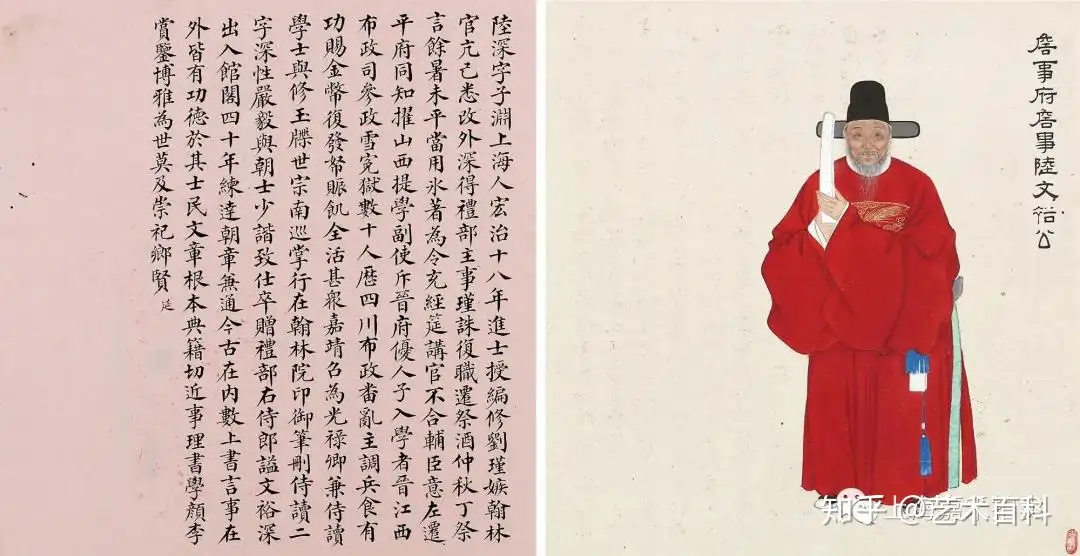 詹事府詹事陸文裕公
陸深字子淵上海人宏治十八年進士授編修劉瑾嫉翰林
官亢己悉改外深得禮部主事瑾誅復職遷祭酒仲秋丁祭
言餘暑未平當用氷著為令充經筵講官不合輔臣意左遷
平府同知擢山西提學副使斥晉府優人子入學者晉江西
布政司參政雪寃獄數十人歷四川布政畨亂主調兵食有
功賜金幣復發帑賑飢全活甚衆嘉靖召為光祿卿兼侍讀
學士與修玉牒世宗南巡掌行在翰林院印御筆刪侍讀二
字深性嚴毅與朝士少諧致仕卒贈禮部右侍郎謚文裕深
出入館閣四十年練達朝章無通今古在內數上書言事在
外皆有功德於其士民文章根本典籍切近事理書學顏李
賞鑒博雅為世莫及崇祀鄉賢 延
知乎 @艺术百科